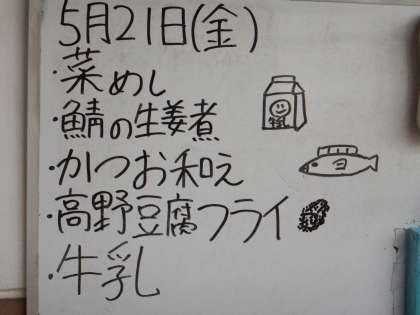 5月21日(金)
・菜めし
・鯖の生姜煮
・かつお和え
・高野豆腐フライ
・牛乳